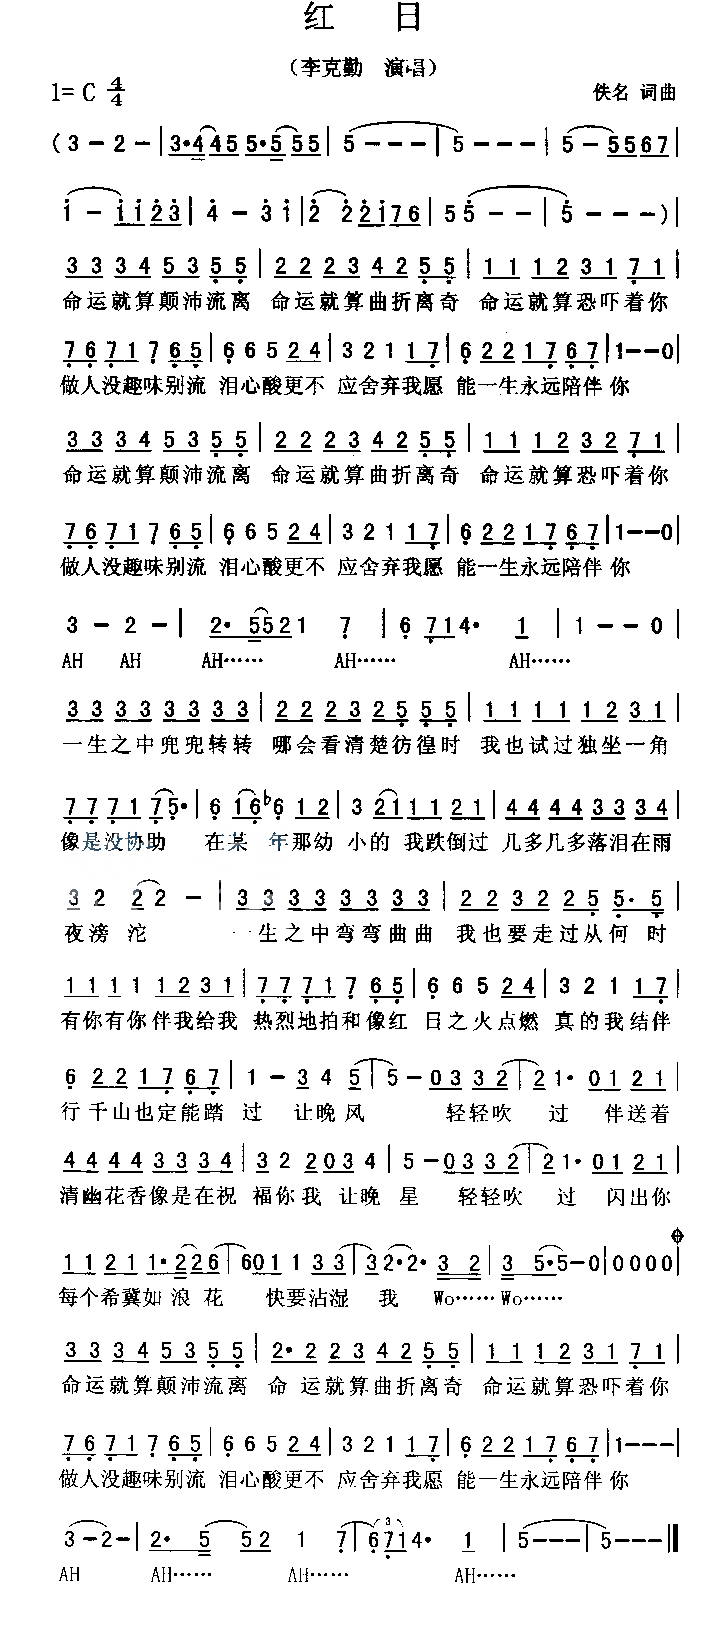 红 日
（李克勤 演唱）
1= C 4/4
佚名 词曲
( 3 - 2 - | 3·4 4 5 5·5 5 5 | 5 - - - | 5 - - - | 5 - 5 5 6 7 |
1 - 1 1 2 3 | 4 - 3 1 | 2 2 2 1 7 6 | 5 5 - - | 5 - - ) |
3 3 3 4 5 3 5 5 | 2 2 2 3 4 2 5 5 | 1 1 1 2 3 1 7 1 |
命运就算颠沛流离 命运就算曲折离奇 命运就算恐吓着你
7 6 7 1 7 6 5 | 6 6 5 2 4 | 3 2 1 1 7 | 6 2 2 1 7 6 7 | 1 - - 0 |
做人没趣味别流 泪心酸更不 应舍弃我愿 能一生永远陪伴你
3 3 3 4 5 3 5 5 | 2 2 2 3 4 2 5 5 | 1 1 1 2 3 2 7 1 |
命运就算颠沛流离 命运就算曲折离奇 命运就算恐吓着你
7 6 7 1 7 6 5 | 6 6 5 2 4 | 3 2 1 1 7 | 6 2 2 1 7 6 7 | 1 - - 0 |
做人没趣味别流 泪心酸更不 应舍弃我愿 能一生永远陪伴你
3 - 2 - | 2· 5 5 2 1 7 | 6 7 1 4· 1 | 1 - - 0
AH AH AH…… AH…… AH……
3 3 3 3 3 3 3 3 | 2 2 2 3 2 5 5 5 | 1 1 1 1 1 2 3 1 |
一生之中兜兜转转 哪会看清楚彷徨时 我也试过独坐一角
7 7 7 1 7 5· | 6 1 6 b6 1 2 | 3 2 1 1 1 2 1 | 4 4 4 4 3 3 3 4 |
像是没协助 在某 年那幼 小的 我跌倒过 几多几多落泪在雨
3 2 2 2 - | 3 3 3 3 3 3 3 3 | 2 2 3 2 2 5 5· 5 |
夜滂 沱 一生之中弯弯曲曲 我也要走过从何 时
1 1 1 1 1 2 3 1 | 7 7 7 1 7 6 5 | 6 6 5 2 4 | 3 2 1 1 7 |
有你有你伴我给我 热烈地拍和像红 日之火点燃 真的我结伴
6 2 2 1 7 6 7 | 1 - 3 4 5 | 5 - 0 3 3 2 | 2 1· 0 1 2 1 |
行千山也定能踏 过 让晚风 轻轻吹 过 伴送着
4 4 4 4 3 3 3 4 | 3 2 2 0 3 4 | 5 - 0 3 3 2 | 2 1· 0 1 2 1 |
清幽花香像是在祝 福你我 让晚 星 轻轻吹 过 闪出你
1 1 2 1 1· 2 2 6 | 6 0 1 1 3 3 | 3 2· 2· 3 2 | 3 5· 5 - 0 | 0 0 0 0 |
每个希冀如 浪 花 快要沾湿 我 Wo…… Wo……
3 3 3 4 5 3 5 5 | 2· 2 2 3 4 2 5 5 | 1 1 1 2 3 1 7 1 |
命运就算颠沛流离 命 运就算曲折离奇 命运就算恐吓着你
7 6 7 1 7 6 5 | 6 6 5 2 4 | 3 2 1 1 7 | 6 2 2 1 7 6 7 | 1 - - - |
做人没趣味别流 泪心酸更不 应舍弃我愿 能一生永远陪伴你
3 - 2 - | 2· 5 5 2 1 7 | 6 7 1 4· 1 | 5 - - - | 5 - - - ||
AH AH…… AH…… AH……